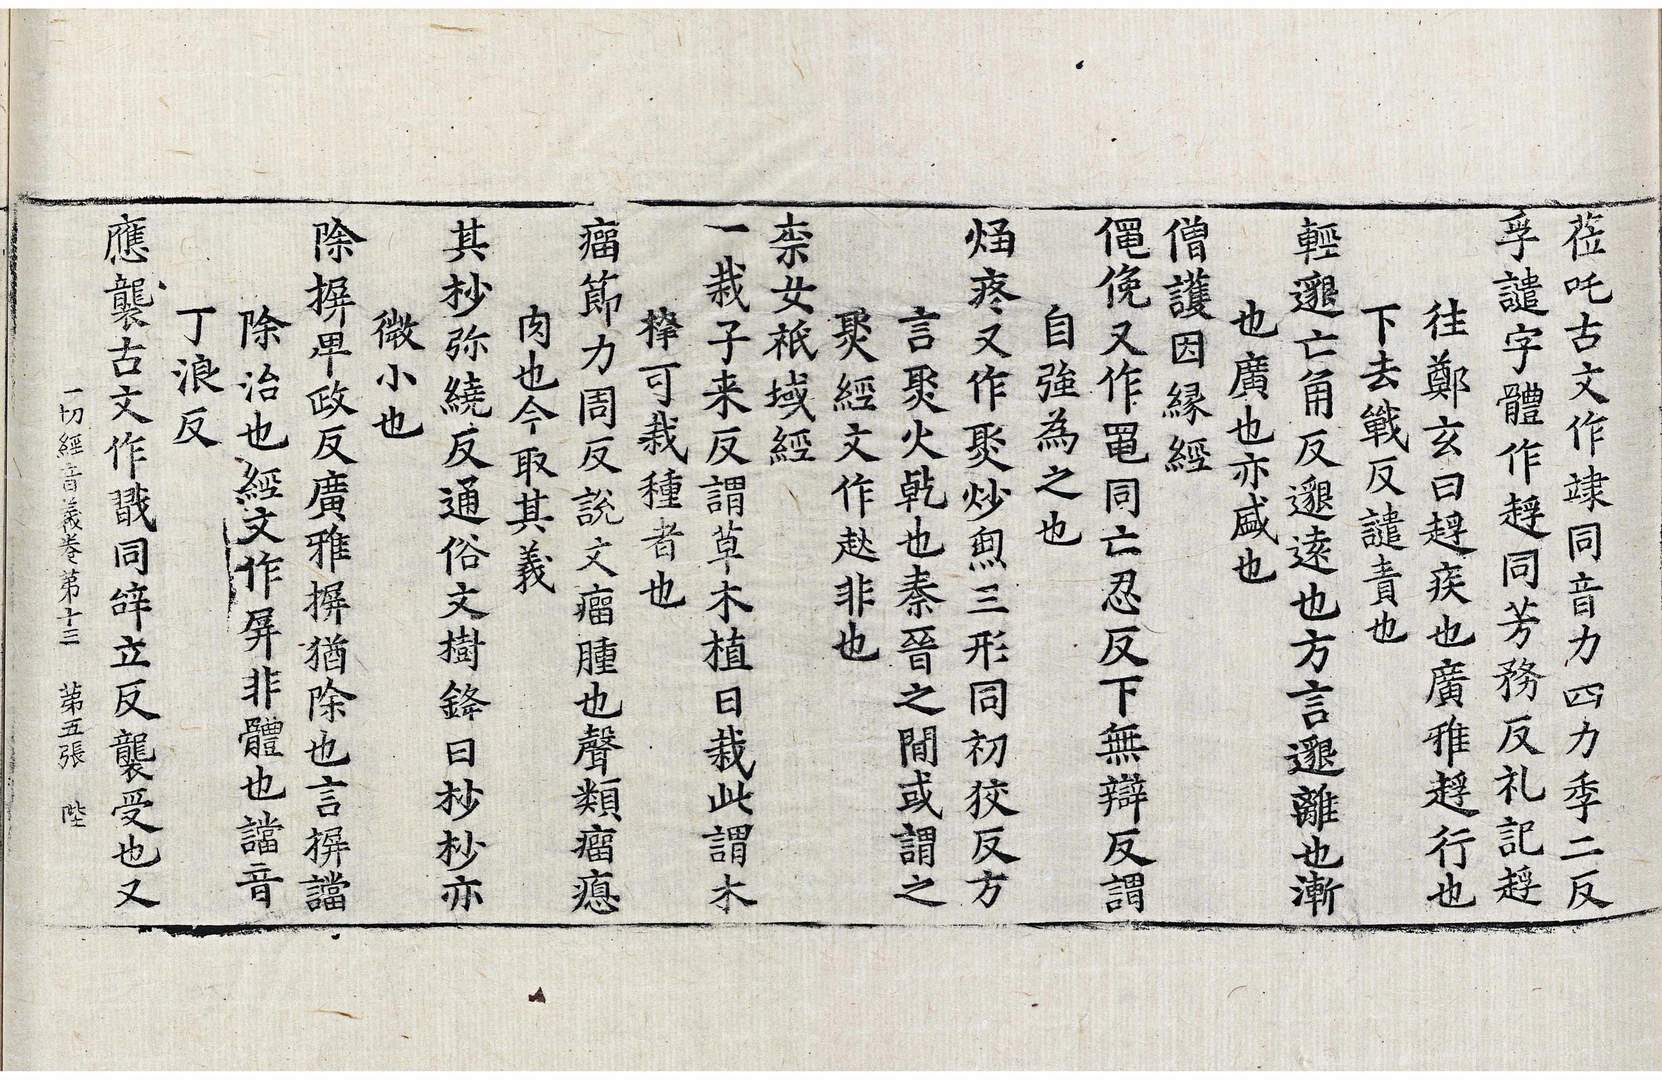 莅吒古文作竦同音力四力季二反
孚譴字體作𧼱同芳務反礼記𧼱
往鄭玄曰𧼱疾也廣雅𧼱行也
下去戰反譴責也
輕邈亡角反邈遠也方言邈離也漸
也廣也亦盛也
僧護因縁經
僶俛又作黽同亡忍反下無辯反謂
自強為之也
疼又作炒𤋱三形同初狡反方
言火乹也秦晉之間或謂之
經文作非也
柰女祇域經
一栽子来反謂草木植曰栽此謂木
可栽種者也
瘤節力周反說文瘤腫也聲類瘤瘜
肉也今取其義
其杪弥繞反通俗文樹鋒曰杪杪亦
微小也
除摒卑政反廣雅摒猶除也言摒譡
除治也經文作屏非體也譡音
丁浪反
應襲古文作戢同辝立反襲受也又
一切經音義卷第十三　第五張　陛